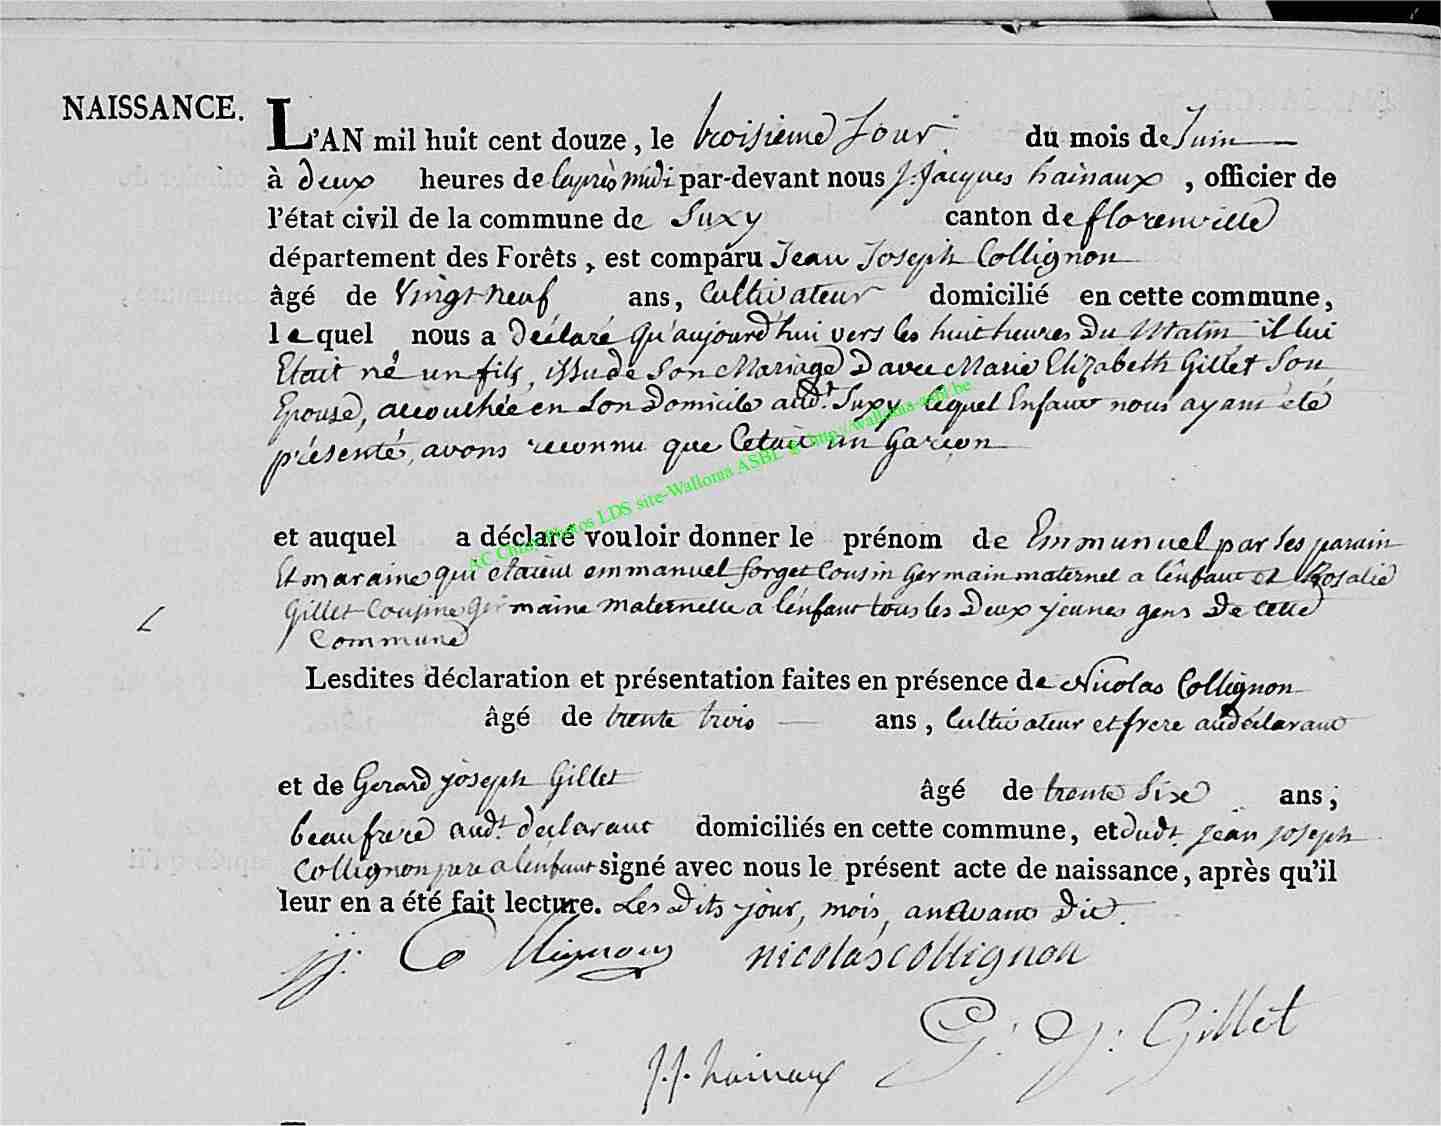 NAISSANCE.
L'AN mil huit cent douze, le troisieme Jour du mois de Juin
à deux heures de l'après midi par-devant nous J. Jacques hainaux, officier de
l'état civil de la commune de Suxy canton de florenville
département des Forêts, est comparu Jean Joseph Collignon
âgé de Vingt neuf ans, Cultivateur domicilié en cette commune,
lequel nous a déclaré qu'aujourd'hui vers les huit heures du Matin il lui
Etait né un fils, issu de Son Mariage d'avec Marie Elizabeth Gillet Son
Epouse, accouchée en Son Domicile aud.t Suxy lequel Enfant nous ayant été
présenté, avons reconnu que C'etait un Garçon
AC Chiny Photos LDS site-Wallonia ASBL http://wallonia-asbl.be
et auquel a déclaré vouloir donner le prénom de Emmunuel par ses parain
Et maraine qui étaient emmanuel forget Cousin Germain maternel a l'enfant et Rosalie
Gillet Cousine Germaine maternelle a l'enfant tous les Deux jeunes gens De cette
Commune
Lesdites déclaration et présentation faites en présence de Nicolas Collignon
âgé de trente trois ans, Cultivateur et frere au déclarant
et de Gerard joseph Gillet âgé de trente Six ans;
beaufrere aud.t declarant domiciliés en cette commune, et dudt. jean joseph
Collignon pere a l'enfant signé avec nous le présent acte de naissance, après qu'il
leur en a été fait lecture. Les Dits jour, mois, an avant Dit.
jj. Collignon nicolas collignon
G. J. Gillet
J. J. hainaux